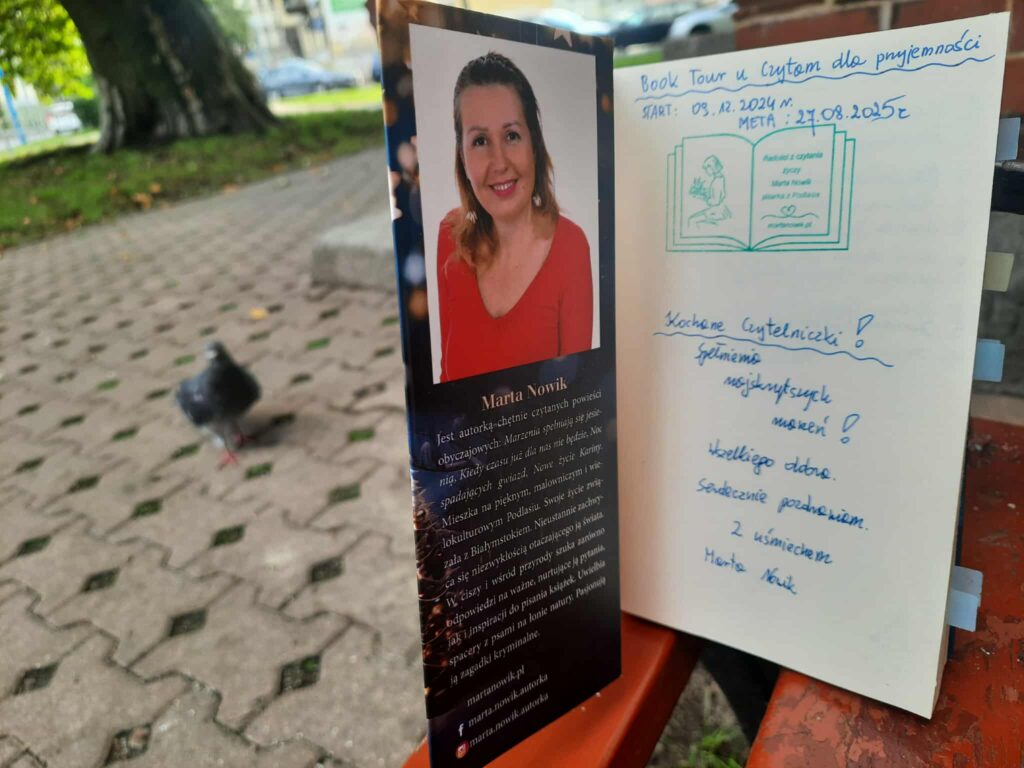 Marta Nowik
Jest autorką chętnie czytanych powieści
obyczajowych: Marzenia spełniają się jesie-
nią, Kiedy czasu już dla nas nie będzie, Noc
spadających gwiazd, Nowe życie Kariny.
Mieszka na pięknym, malowniczym i wie-
lokulturowym Podlasiu. Swoje życie zwią-
zała z Białymstokiem. Nieustannie zachwy-
ca się niezwykłością otaczającego ją świata.
W ciszy i wśród przyrody szuka zarówno
odpowiedzi na ważne, nurtujące ją pytania,
jak i inspiracji do pisania książek. Uwielbia
spacery z psami na łonie natury. Pasjonują
ją zagadki kryminalne.
martanowik.pl
marta.nowik.autorka
marta.nowik.autorka
Book Tour u Czytam dla przyjemności
START: 09.12.2024 r.
META: 27.08.2025 r
Radości z czytania
życzy
Marta Nowik
pisarka z Podlasia
martanowik.pl
Kochane Czytelniczki!
Spełnienia
najskrytszych
marzeń!
Wszelkiego dobra.
Serdecznie pozdrawiam.
Z uśmiechem
Marta Nowik